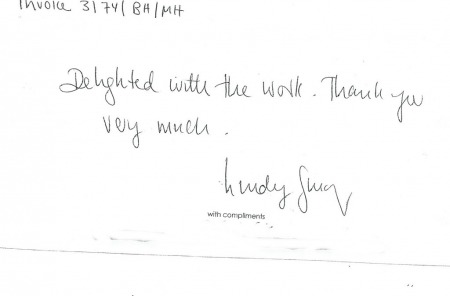 Invoice 3174/BH/MH
Delighted with the work. Thank you
very much.
with compliments